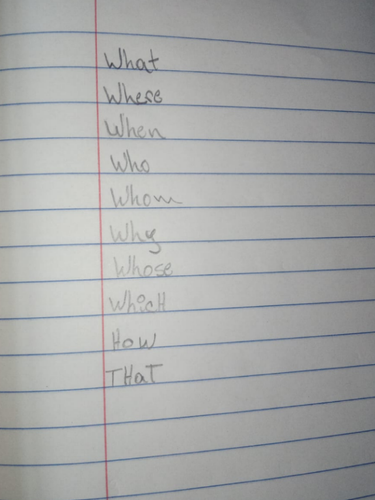 What
Where
When
Who
Whom
Why
Whose
WhicH
How
THaT